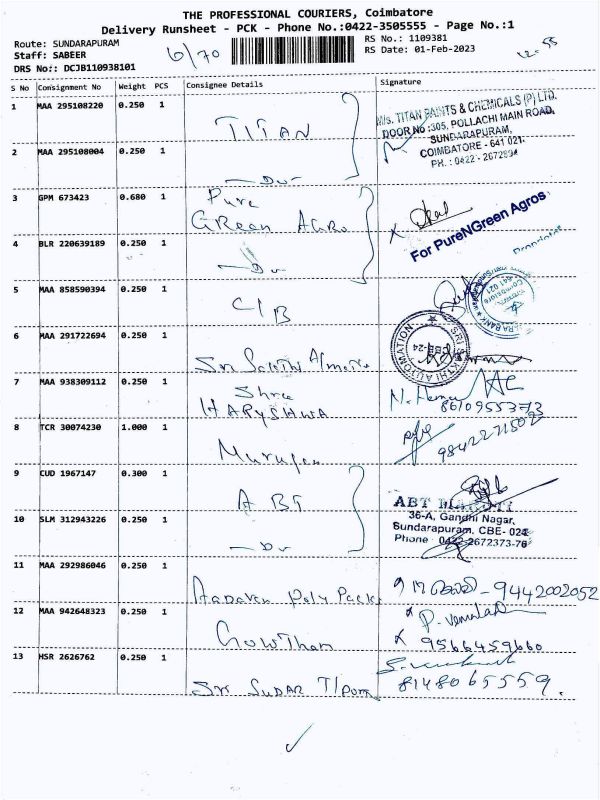 THE PROFESSIONAL COURIERS, Coimbatore
Delivery Runsheet - PCK - Phone No.:0422-3505555 - Page No.:1
Route: SUNDARAPURAM
RS No.: 1109381
Staff: SABEER
RS Date: 01-Feb-2023
DRS No:: DCJB110938101
S No Consignment No Weight PCS Consignee Details Signature
1 MAA 295108220 0.250 1 TITAN
M/s. TITAN PAINTS & CHEMICALS (P) LTD.
DOOR No :305, POLLACHI MAIN ROAD,
SUNDARAPURAM,
COIMBATORE - 641 021.
PH. : 0422 - 267289
2 MAA 295108004 0.250 1 - Do -
3 GPM 673423 0.680 1 Pure
GReen AGRO
For PureNGreen Agros
Proprietor
4 BLR 220639189 0.250 1 - Do -
5 MAA 858590394 0.250 1 CIB
6 MAA 291722694 0.250 1 Sri Sakthi
SRI SAKTHI AUTOMATION
CBE-24
7 MAA 938309112 0.250 1 Shree
HARYSHWA
8610955373
8 TCR 30074230 1.000 1 Murugan
9842271502
9 CUD 1967147 0.300 1 ABT
ABT MARUTI
36-A, Gandhi Nagar,
Sundarapuram, CBE- 024
Phone : 0422-2672373-76
10 SLM 312943226 0.250 1 - Do -
11 MAA 292986046 0.250 1 Poly Pack
9442002052
12 MAA 942648323 0.250 1 Gowtham
9566459660
13 HSR 2626762 0.250 1 Sri SUDAR
8148065559